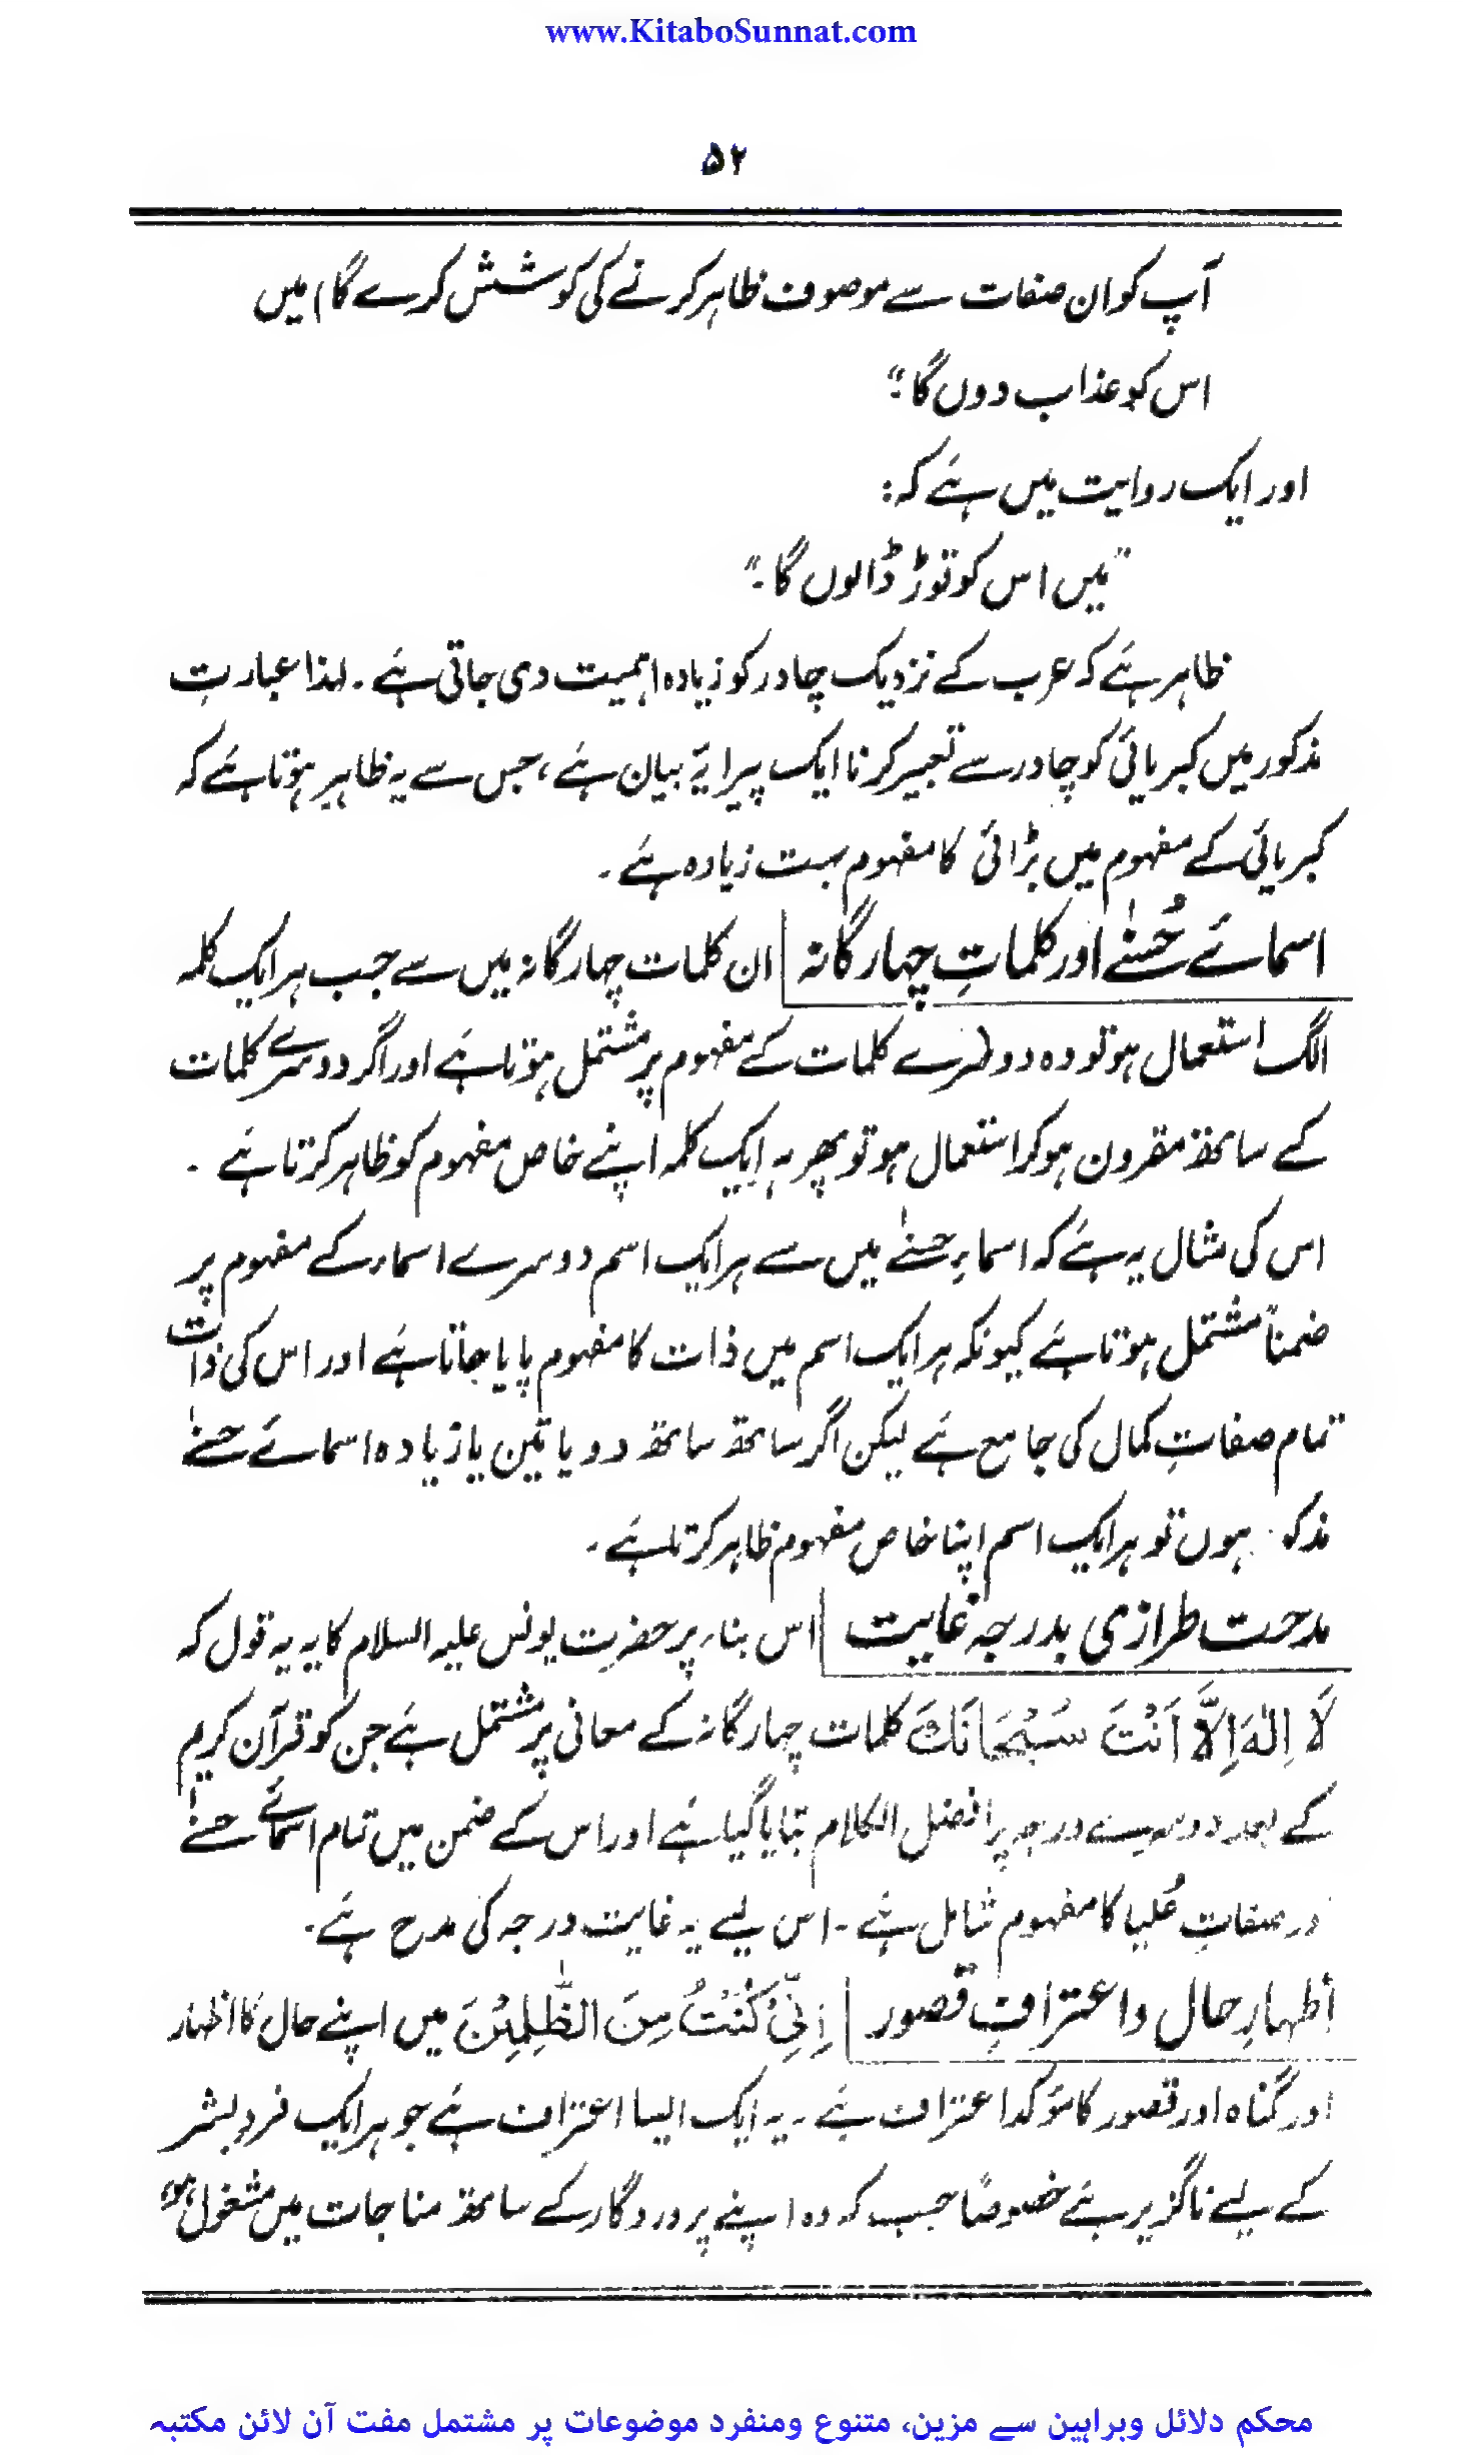 www.KitaboSunnat.com
۵۲
آپ کو ان صفات سے موصوف ظاہر کرنے کی کوشش کرے گا) میں
اس کو عذاب دوں گا۔"
اور ایک روایت میں ہے کہ:
"میں اس کو توڑ ڈالوں گا۔"
ظاہر ہے کہ عرب کے نزدیک چادر کو زیادہ اہمیت دی جاتی ہے۔ لہذا عبارتِ
مذکور میں کبریائی کو چادر سے تعبیر کرنا ایک پیرایۂ بیان ہے، جس سے یہ ظاہر ہوتا ہے کہ
کبریائی کے مفہوم میں بڑائی کا مفہوم بہت زیادہ ہے۔
اسمائے حُسنےٰ اور کلماتِ چہارگانہ ان کلمات چہارگانہ میں سے جب ہر ایک کلمہ
الگ استعمال ہو تو وہ دوسرے کلمات کے مفہوم پر مشتمل ہوتا ہے اور اگر دوسرے کلمات
کے ساتھ مقرون ہو کر استعمال ہو تو پھر ہر ایک کلمہ اپنے خاص مفہوم کو ظاہر کرتا ہے۔
اس کی مثال یہ ہے کہ اسماءِ حسنےٰ میں سے ہر ایک اسم دوسرے اسماء کے مفہوم پر
ضمناً مشتمل ہوتا ہے کیونکہ ہر ایک اسم میں ذات کا مفہوم پایا جاتا ہے اور اس کی ذات
تمام صفاتِ کمال کی جامع ہے لیکن اگر ساتھ ساتھ دو یا تین یا زیادہ اسمائے حسنےٰ
مذکو ہوں تو ہر ایک اسم اپنا خاص مفہوم ظاہر کرتا ہے۔
مدحت طرازی بدرجہ غایت اس بناء پر حضرت یونس علیہ السلام کا یہ یہ قول کہ
لَا اِلٰهَ اِلَّا اَنْتَ سُبْحَانَكَ کلمات چہارگانہ کے معانی پر مشتمل ہے جن کو قرآن کریم
کے بعد دوسرے درجہ پر افضل الکلام بتایا گیا ہے اور اس کے ضمن میں تمام اسمائے حسنےٰ
در صفاتِ عُلیا کا مفہوم شامل ہے۔ اس لیے یہ غایت درجہ کی مدح ہے۔
اظہارِ حال و اعترافِ قصور اِنِّیْ كُنْتُ مِنَ الظّٰلِمِیْنَ میں اپنے حال کا اظہار
اور گناہ اور قصور کا مؤکد اعتراف ہے۔ یہ ایک ایسا اعتراف ہے جو ہر ایک فردِ بشر
کے لیے ناگزیر ہے خصوصاً جب کہ وہ اپنے پروردگار کے ساتھ مناجات میں مشغول ہو،
محکم دلائل وبراہین سے مزین، متنوع ومنفرد موضوعات پر مشتمل مفت آن لائن مکتبہ